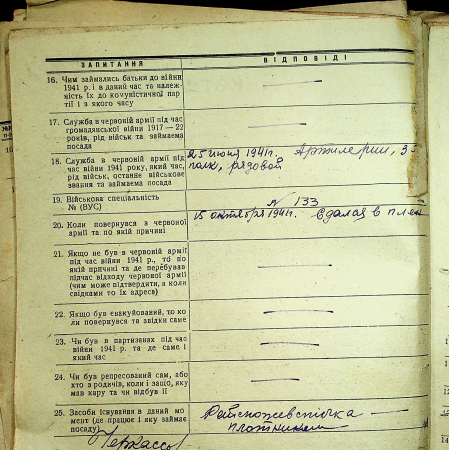 ЗАПИТАННЯ ВІДПОВІДІ
16. Чим займались батьки до війни
1941 р. і в даний час та належ-
ність їх до комуністичної пар-
тії і з якого часу
17. Служба в червоній армії під час
громадянської війни 1917 — 22
років, рід військ та займаема
посада
18. Служба в червоній армії під
час війни 1941 року, який час,
рід військ, останне військове
звання та займаема посада
25 июня 1941г. Артилерии, 35
полк, рядовой
19. Військова спеціальність
№ (ВУС)
№ 133
20. Коли повернувся з червоної
армії та по якій причині
15 октября 1941г. Сдался в плен
21. Якщо не був в червоній армії
під час війни 1941 р., то по
якій причині та де перебував
підчас відходу червоної армії
(чим може підтвердити, а коли
свідками то їх адреса)
22. Якщо був евакуйований, то ко-
ли повернувся та звідки саме
23. Чи був в партизанах під час
війни 1941 р. та де саме і
який час
24. Чи був репресований сам, або
хто з родичів, коли і защо, яку
мав кару та чи відбув її
25. Засоби існування в даний мо-
мент (де працює і яку займає
посаду)
плотником
Черкассы